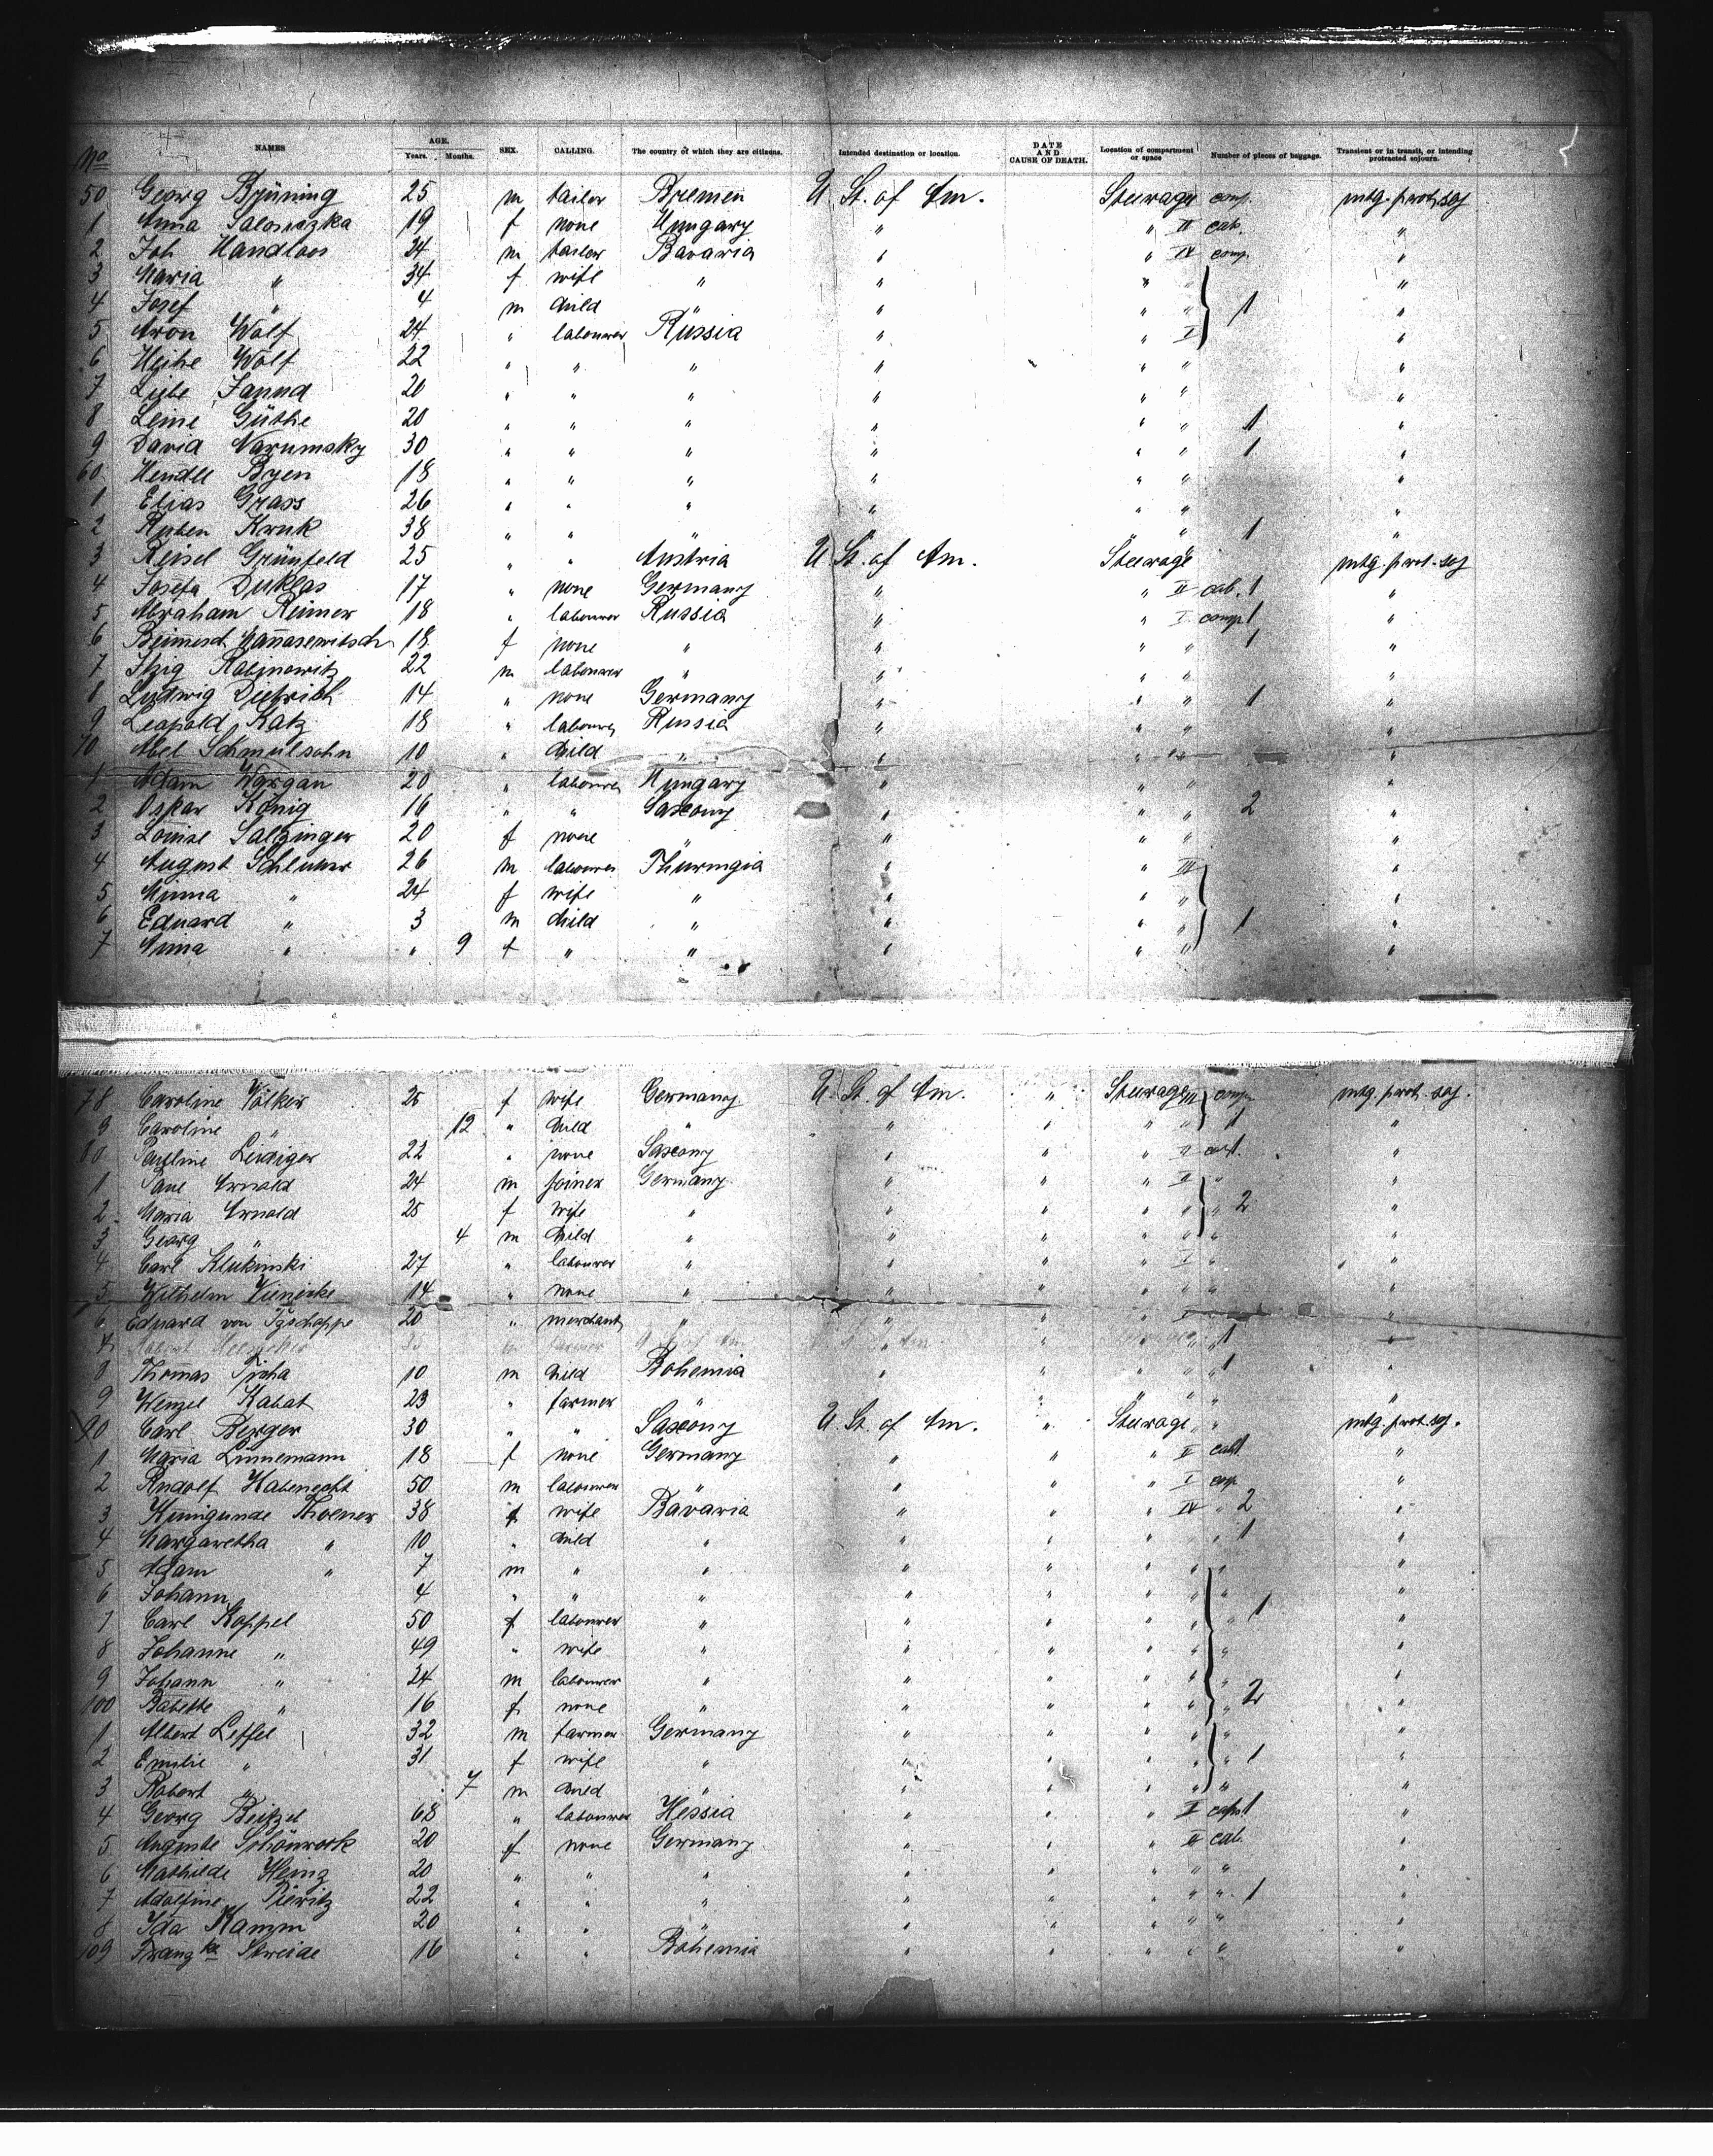 No NAMES AGE. Years. Months. SEX. CALLING. The country of which they are citizens. Intended destination or location. DATE AND CAUSE OF DEATH. Location of compartment or space Number of pieces of baggage. Transient or in transit, or intending protracted sojourn.
50 Georg Brüning 25 m tailor Bremen U. St. of Am. Steerage comp. intg. prot. soj
1 Anna 19 f none Hungary " " II cab. "
2 Joh Handloos 34 m tailor Bavaria " " IV comp. "
3 Maria " 34 f wife " " " " "
4 Josef " 4 m child " " " " 1 "
5 Aron Wolf 24 " labourer Russia " " I "
6 Wolf 22 " " " " " " "
7 Liebe 20 " " " " " " "
8 Leine Güthe 20 " " " " " " 1 "
9 David Narumsky 30 " " " " " " 1 "
60 Hendle Byen 18 " " " " " " "
1 Elias Grass 26 " " " " " " "
2 Ruben Kruk 38 " " " " " " 1 "
3 Reisel Grünfeld 25 " " Austria U. St. of Am. Steerage " intg. prot. soj
4 Josefa Duklas 17 " none Germany " " II cab. 1 "
5 Abraham Reimer 18 " labourer Russia " " I comp 1 "
6 18 f none " " " " 1 "
7 Rabinowitz 22 m labourer " " " " "
8 Ludwig Dietrich 14 " none Germany " " " 1 "
9 Leopold Katz 18 " labourer Russia " " " "
70 Abel Schmulsohn 10 " child " " " " "
1 Adam Wargan 20 " labourer Hungary " " " "
2 Oskar König 16 " " Saxony " " " 2 "
3 Louise Salzinger 20 f none " " " " "
4 August 26 m labourer Thuringia " " III "
5 Minna " 24 f wife " " " " "
6 Eduard " 3 m child " " " " 1 "
7 Anna " " 9 f " " " " " "
78 Caroline Völker 25 f wife Germany U. St. of Am. " Steerage comp intg. prot. soj.
9 Caroline " 12 " child " " " " " 1 "
80 Pauline Leidiger 22 " none Saxony " " " II "
1 Paul Arnold 24 m joiner Germany " " " II " "
2 Maria Arnold 25 f wife " " " " " " 2 "
3 Georg " 4 m child " " " " " " "
4 Carl Klukinski 27 " labourer " " " " I " "
5 Wilhelm Vienecke 14 " none " " " " " " "
6 Eduard von Tzschoppe 20 " merchant " " " " I " "
7 1
8 Thomas Ticha 10 m child Bohemia " " " " " 1 "
9 Wenzel Kabat 23 " farmer " " " " " "
90 Carl Berger 30 " " Saxony U. St. of Am. " Steerage " " intg. prot. soj.
1 Maria Linnemann 18 f none Germany " " " II cab 1 "
2 Rudolf Habenecht 50 m labourer " " " " I "
3 Kunigunde Thoener 38 f wife Bavaria " " " IV " 2 "
4 Margaretha " 10 " child " " " " " " 1 "
5 Adam " 7 m " " " " " " " "
6 Johann " 4 " " " " " " " " "
7 Carl Koppel 50 f labourer " " " " " " 1 "
8 Johanne " 49 " wife " " " " " " "
9 Johann " 24 m labourer " " " " " " "
100 Babette " 16 f none " " " " " " 2 "
1 Albert Leffel 32 m farmer Germany " " " " " "
2 Emilie " 31 f wife " " " " " " 1 "
3 Robert " 7 m child " " " " " " "
4 Georg Beitzel 68 " labourer Hessia " " " I "
5 Auguste Schönwerk 20 f none Germany " " " II cab. "
6 Mathilde 20 " " " " " " " " "
7 Adolfine 22 " " " " " " " " 1 "
8 Ida Kamm 20 " " " " " " " " "
109 16 " " Bohemia " " " " " "